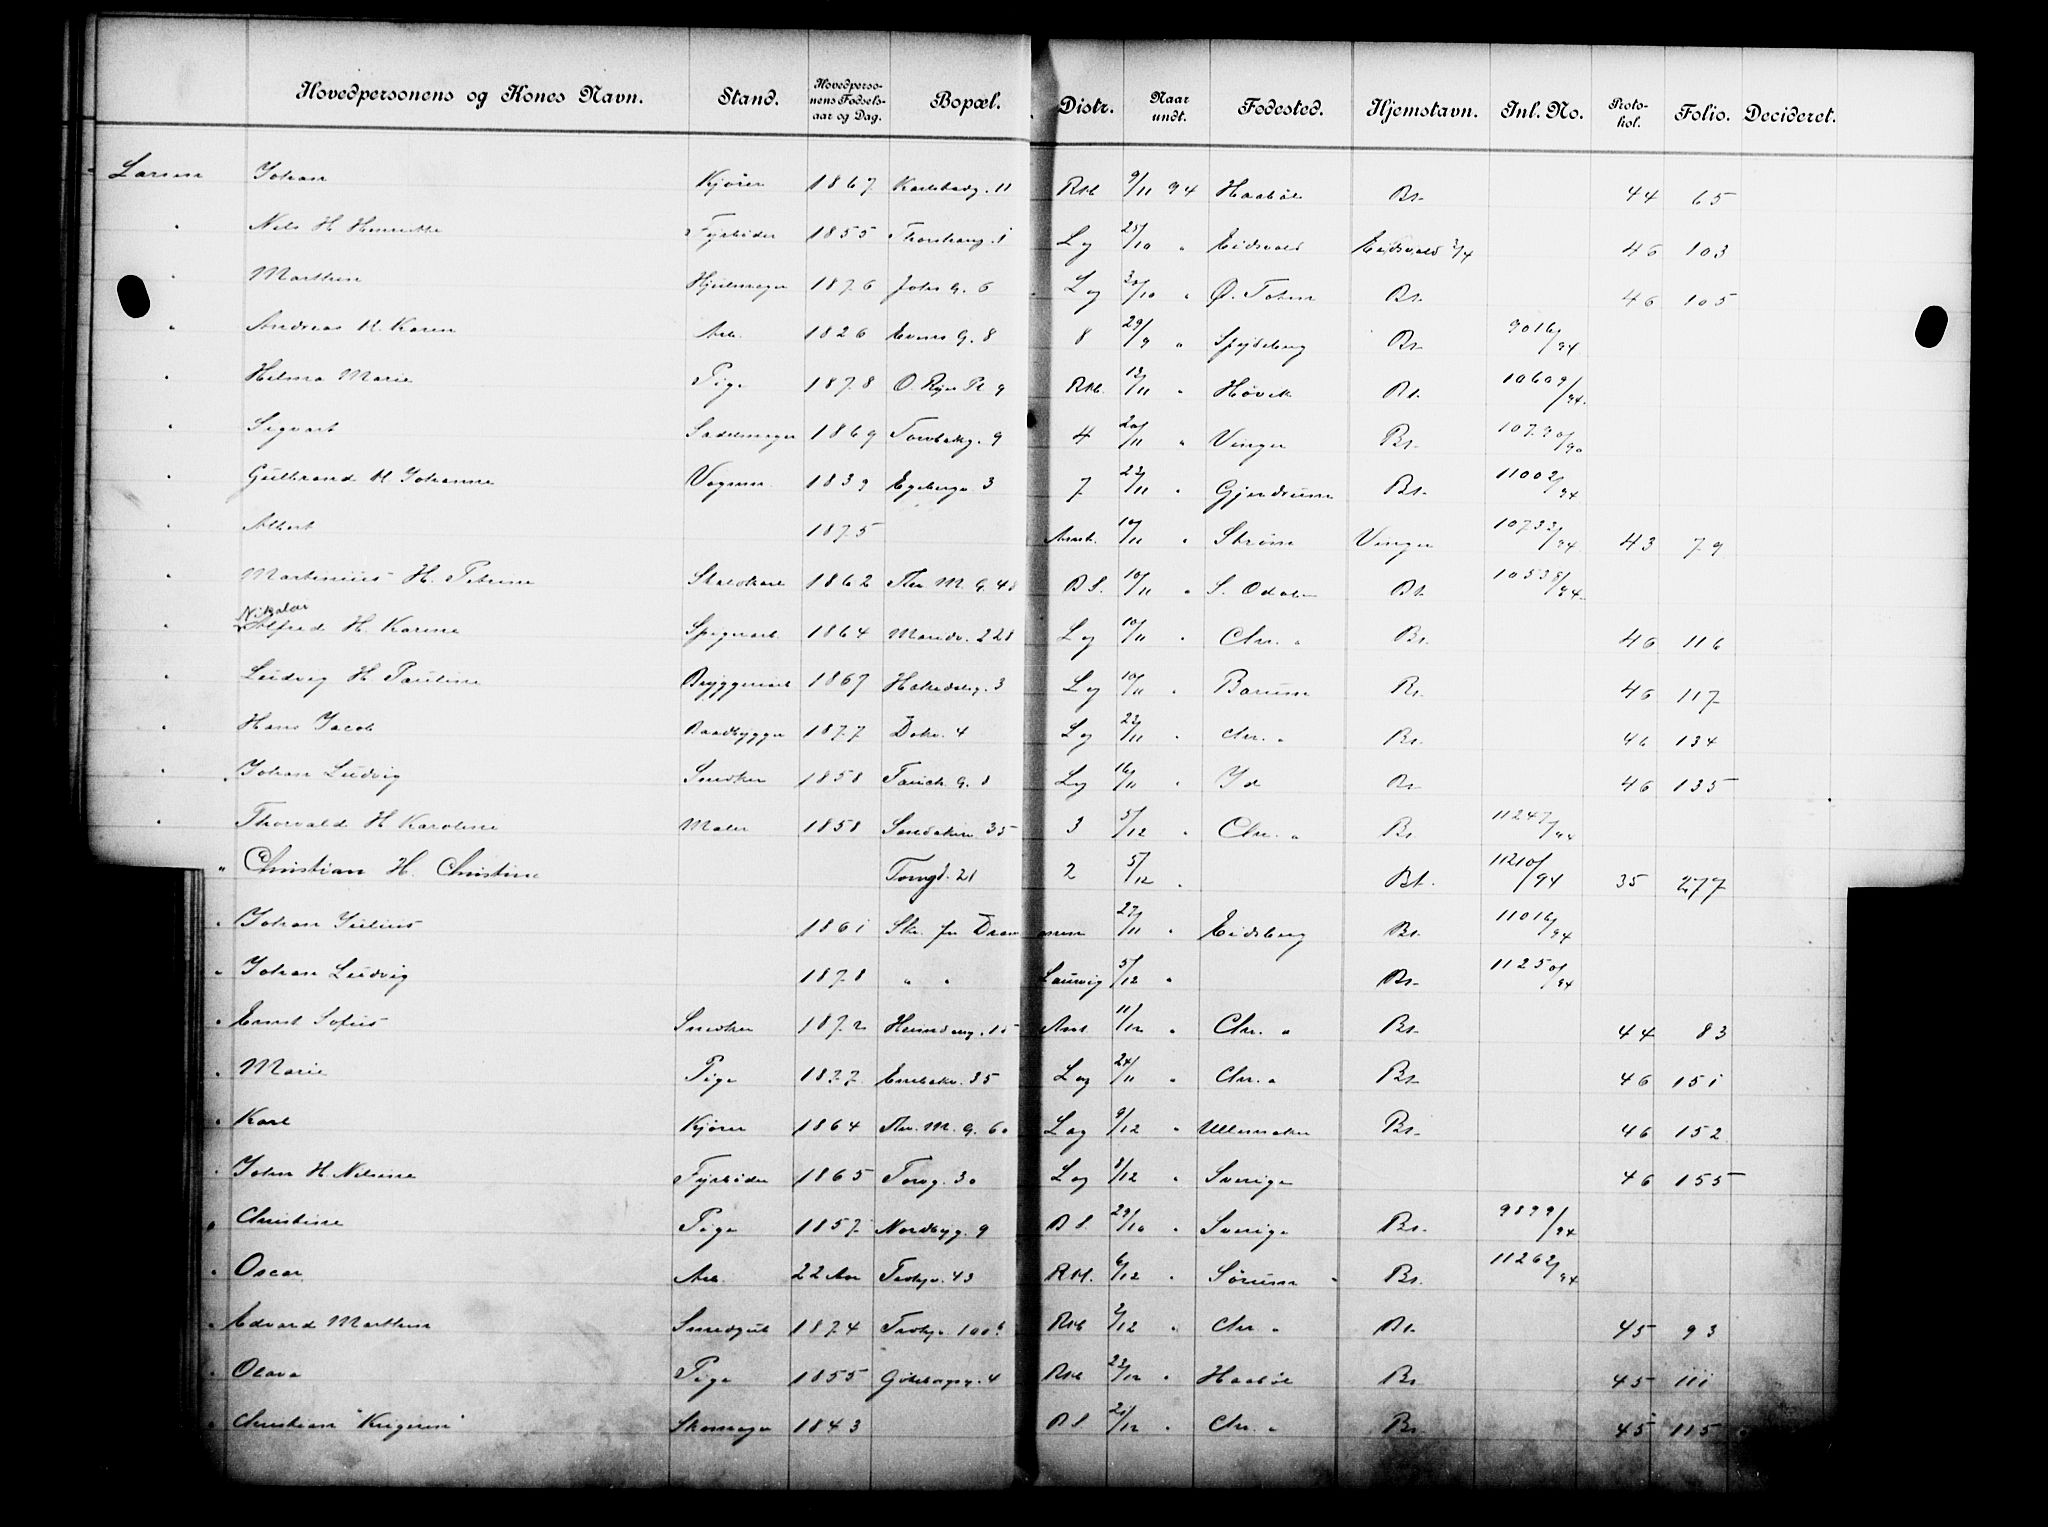 Hovedpersonens og Kones Navn. Stand. Hovedperso-nens Fødsels-aar og Dag. Bopæl. Distr. Naar undt. Fødested. Hjemstavn. Inl. No. Proto-kol. Folio. Decideret.
Larsen Johan Kjører 1867 11 Rst. 9/11 94 Haabøl Bt. 44 65
" Nils H. Henriette Fyrbøder 1855 Lag 25/10 " Eidsvold Eidsvold 46 103
" Marthin Hjulmager 1876 Johs G. 6 Lag " Ø. Toten Bt. 46 105
" Andreas H. Karen Arb. 1826 Evens G. 8 8 29/9 " Spydeberg Bt. 9016/94
" Helma Marie Pige 1878 O. Ryes Pl 9 Rst. 12/11 " Høvik Bt. 10609/94
" Sigvart Sadelmager 1869 9 4 20/11 " Vinger Bt. 10790/90
" Gulbrand H. Johanne Vognm. 1839 Egebergs 3 7 22/11 " Gjerdrum Bt. 11002/94
" Albert 1875 10/11 " Strøm Vinger 10733/94 43 79
" Martinius H. Petrine Staldkarl 1862 Thr. M. G. 48 B S. 10/11 " S. Odalen Bt. 10538/94
" Nikolai Alfred H. Karine Spigerarb 1864 Maridv. 228 Lag 10/11 " Chr. a Bt. 46 116
" Ludvig H. Pauline Bryggeriarb 1867 3 Lag 10/11 " Bærum Bt. 46 117
" Hans Jacob Baadbygger 1877 Dokv. 4 Lag 22/11 " Chr. a Bt. 46 134
" Johan Ludvig Snedker 1858 8 Lag 16/11 " Id Bt. 46 135
" Thorvald H. Karoline Maler 1858 Sandakerv. 35 3 5/12 " Chr. a Bt. 11247/94
" Christian H. Christine Torvgd. 21 2 5/12 " Bt. 11210/94 35 277
" Johan Julius 1861 Skr. fra Drammen 27/11 " Eidsberg Bt. 11016/94
" Johan Ludvig 1878 " " Laurvig 5/12 " Bt. 11250/94
" Ernst Sofus Snedker 1872 15 Anst 11/12 " Chr. a Bt. 44 83
" Marie Pige 1877 Enebakv. 35 Lag 24/11 " Chr. a Bt. 46 151
" Karl Kjører 1864 Thr. M. G. 60 Lag 9/12 " Ullensaker Bt. 46 152
" John H. Nilsine Fyrbøder 1865 Torvg. 30 Lag 8/12 " Sverige 46 155
" Christine Pige 1857 Nordbyg. 9 B S. 29/10 " Sverige Bt. 9899/94
" Oscar Arb. 22 Aar 43 Rst. 6/12 " Sørum " Bt. 11262/94
" Edvard Marthin Smedgut 1874 Rst 2/12 " Chr. a Bt. 45 93
" Olava Pige 1855 Gøteborgg. 4 Rst 22/12 " Haabøl Bt 45 111
" Christian "Krigeren" Skomager 1843 B S. 21/12 " Chr. a Bt. 45 115